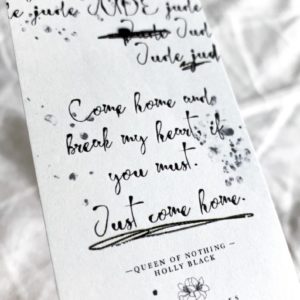 jude JUDE jude
Jude Jud
Jude jud
Come home and
break my heart if
you must.
Just come home.
~QUEEN OF NOTHING~
HOLLY BLACK